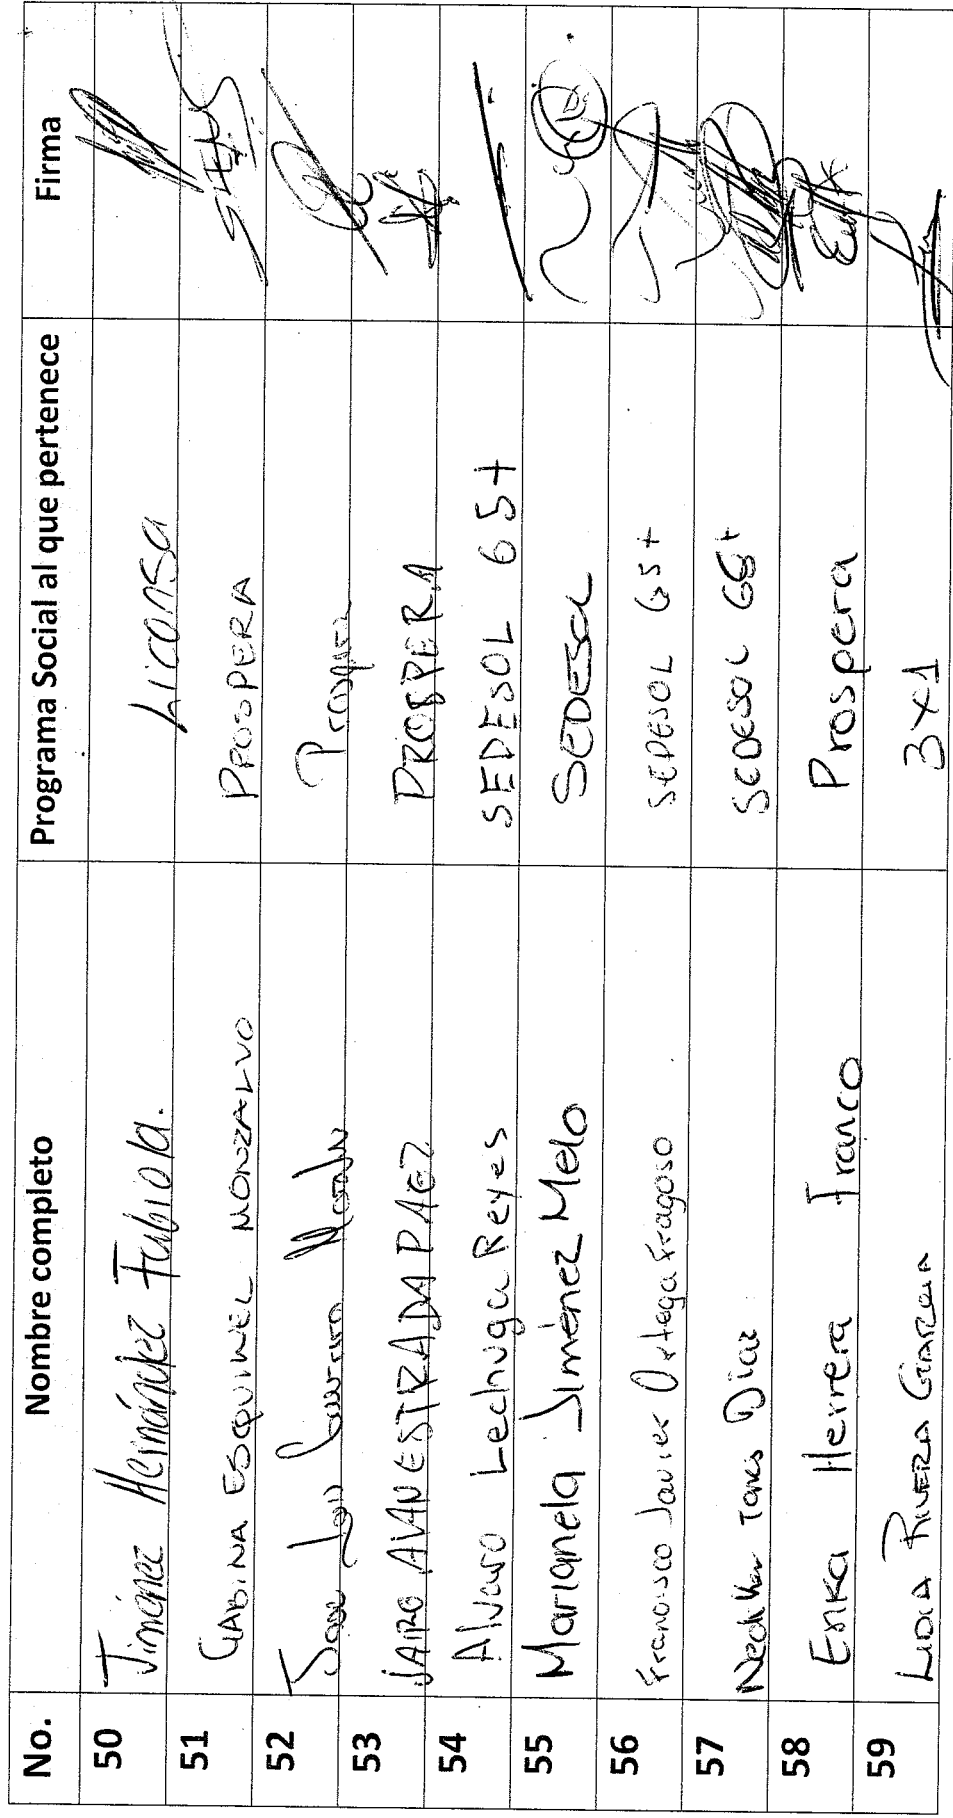 No. Nombre completo Programa Social al que pertenece Firma
50 Jiménez Hernández Fabiola. Liconsa
51 GABINA ESQUIVEL MONZALVO PROSPERA
52 Jose Luis
53 JAIRO AVAN ESTRADA PAEZ PROSPERA
54 Alvaro Lechuga Reyes SEDESOL 65+
55 Marianela Jiménez Melo SEDESOL
56 Francisco Javier Ortega Fragoso SEDESOL 65+
57 Torres Diaz SEDESOL 65+
58 Erika Herrera Franco Prospera
59 LIDIA RIVERA GARCIA 3X1